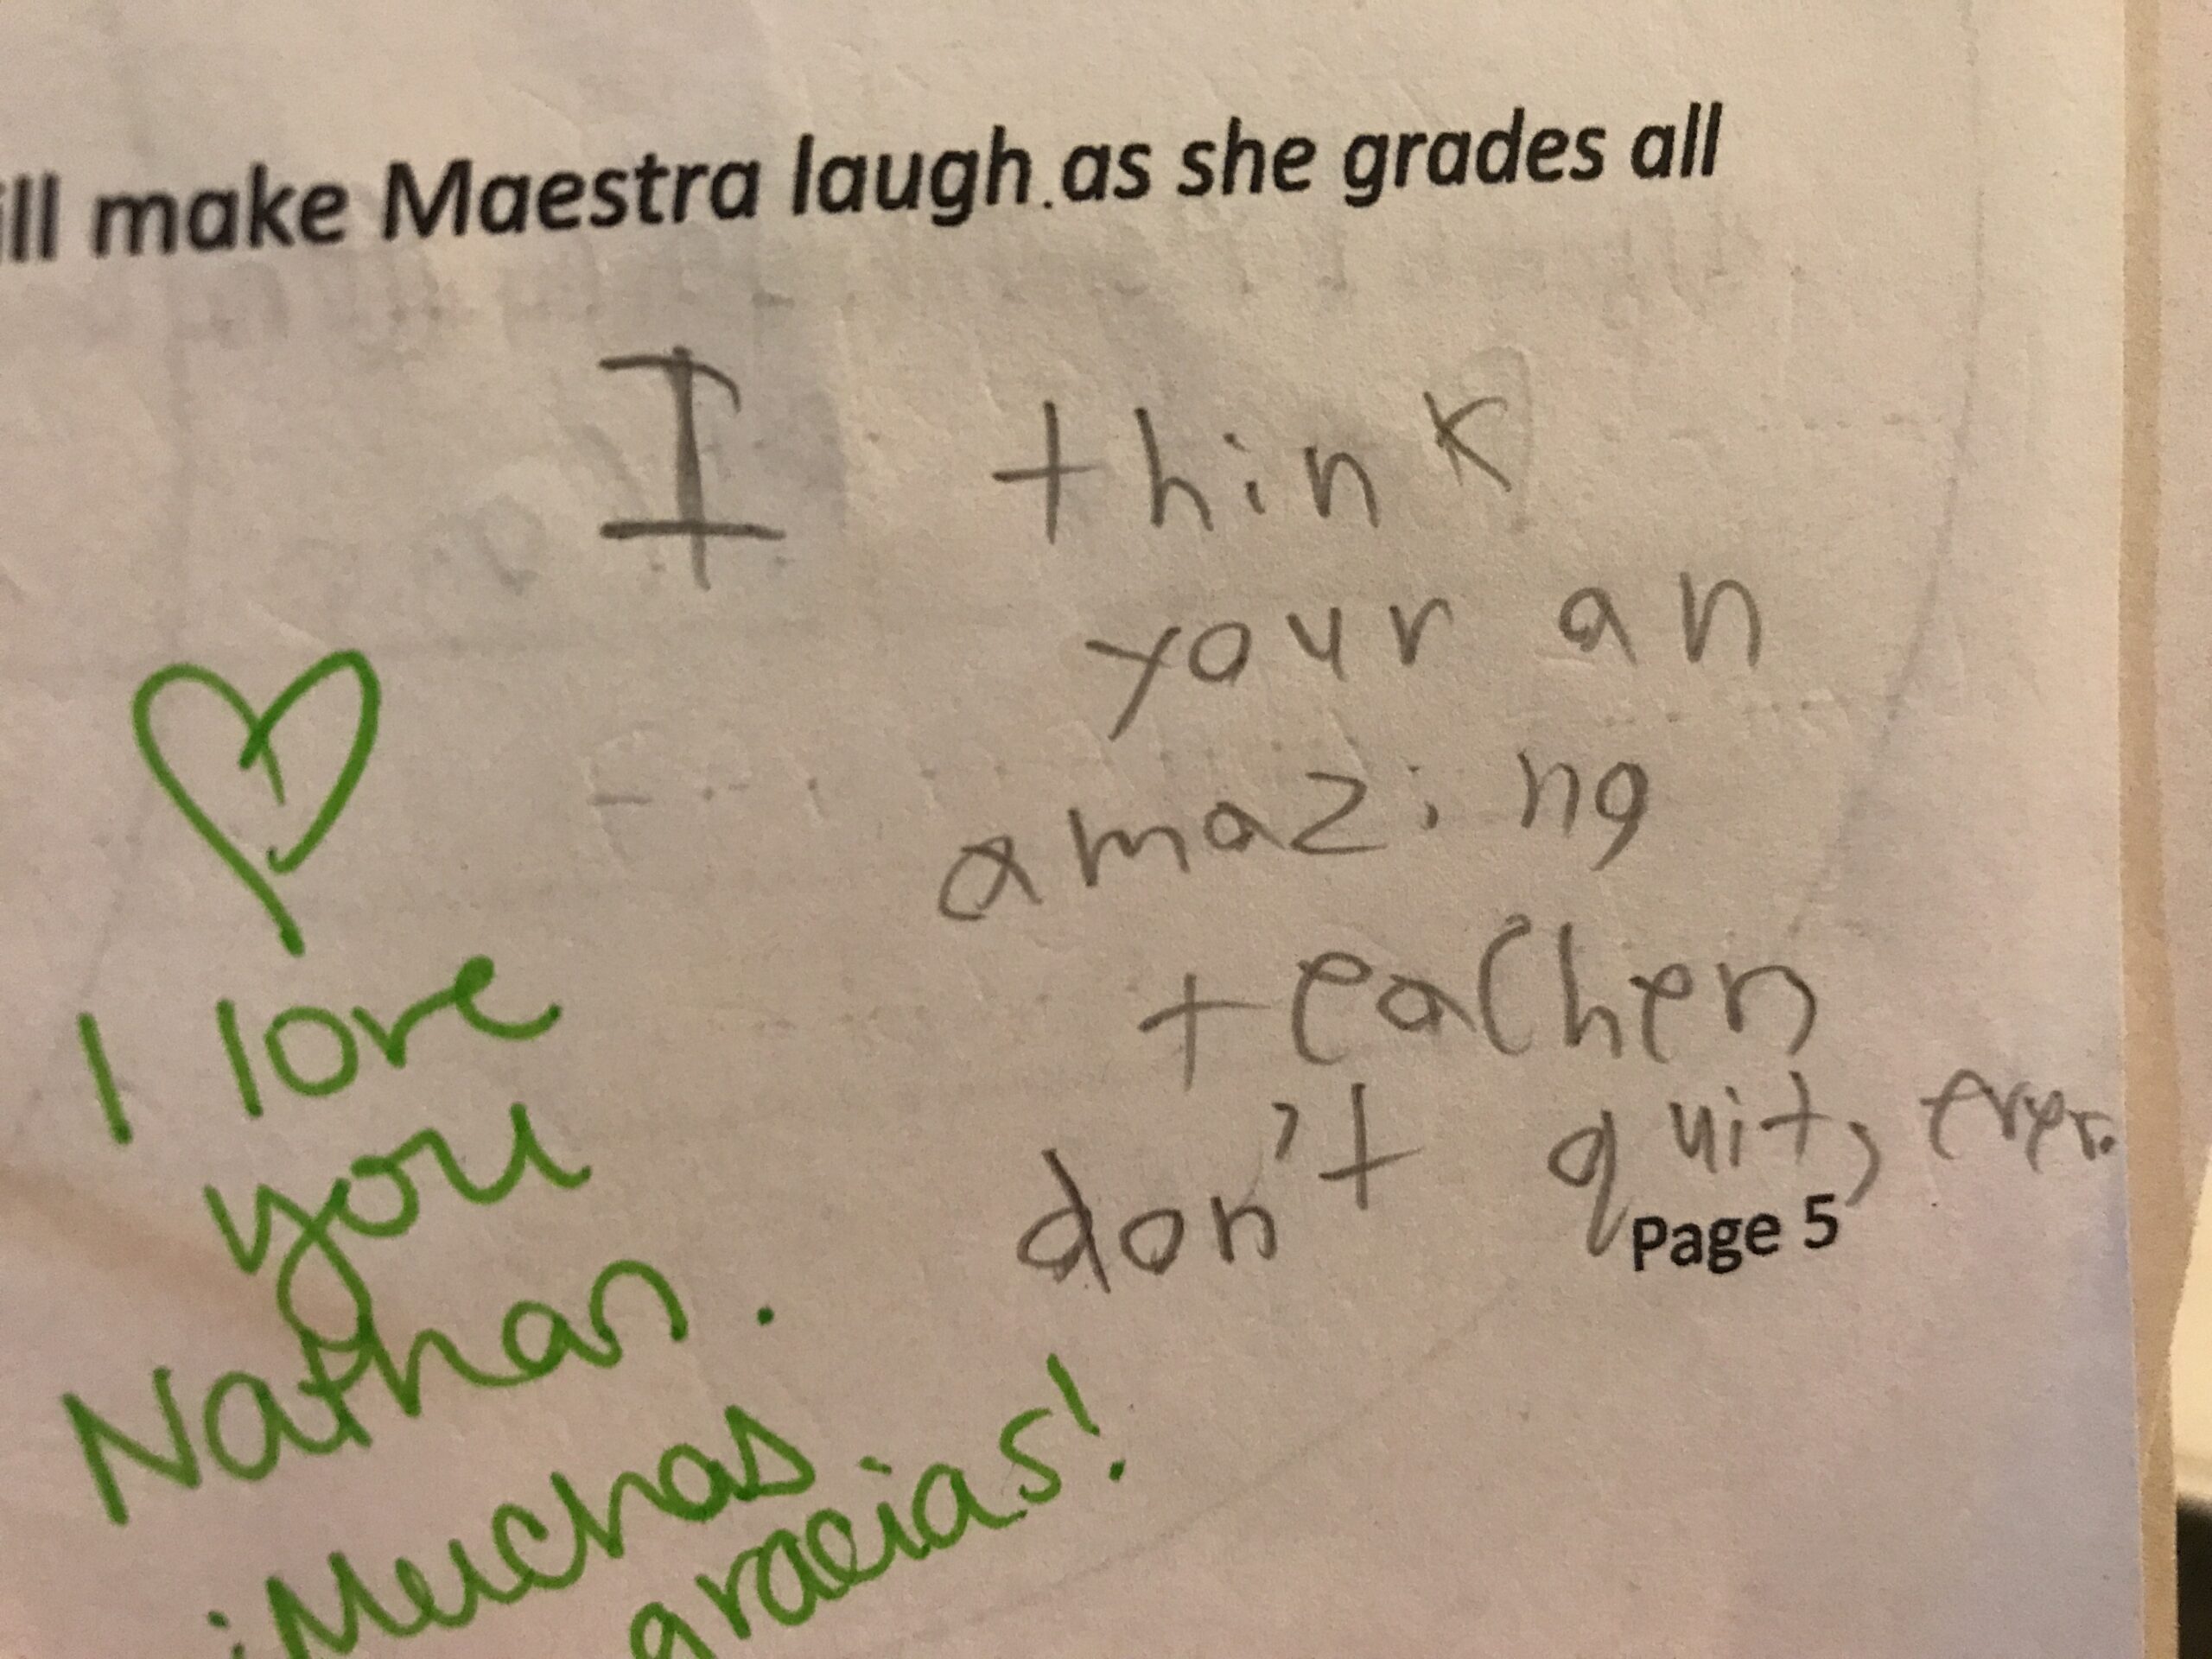 ill make Maestra laugh as she grades all
I think
your an
amazing
teacher
don't quit, ever.
Page 5
I love
you
Nathan.
¡Muchas
gracias!